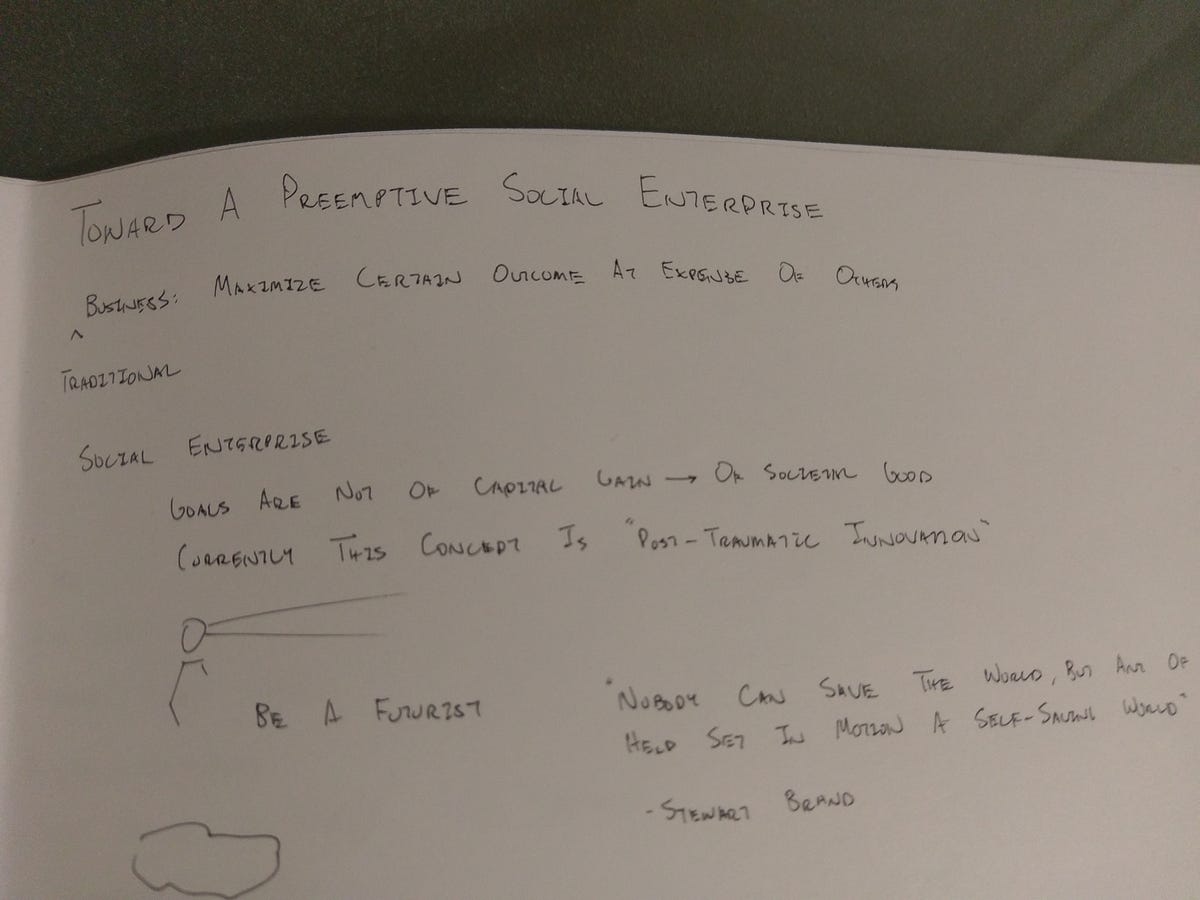 TOWARD A PREEMPTIVE SOCIAL ENTERPRISE
BUSINESS: MAXIMIZE CERTAIN OUTCOME AT EXPENSE OF OTHERS
^
TRADITIONAL
SOCIAL ENTERPRISE
GOALS ARE NOT OF CAPITAL GAIN → OF SOCIETAL GOOD
CURRENTLY THIS CONCEPT IS "POST-TRAUMATIC INNOVATION"
BE A FUTURIST
"NOBODY CAN SAVE THE WORLD, BUT ANY OF
HELP SET IN MOTION A SELF-SAVING WORLD"
-STEWART BRAND